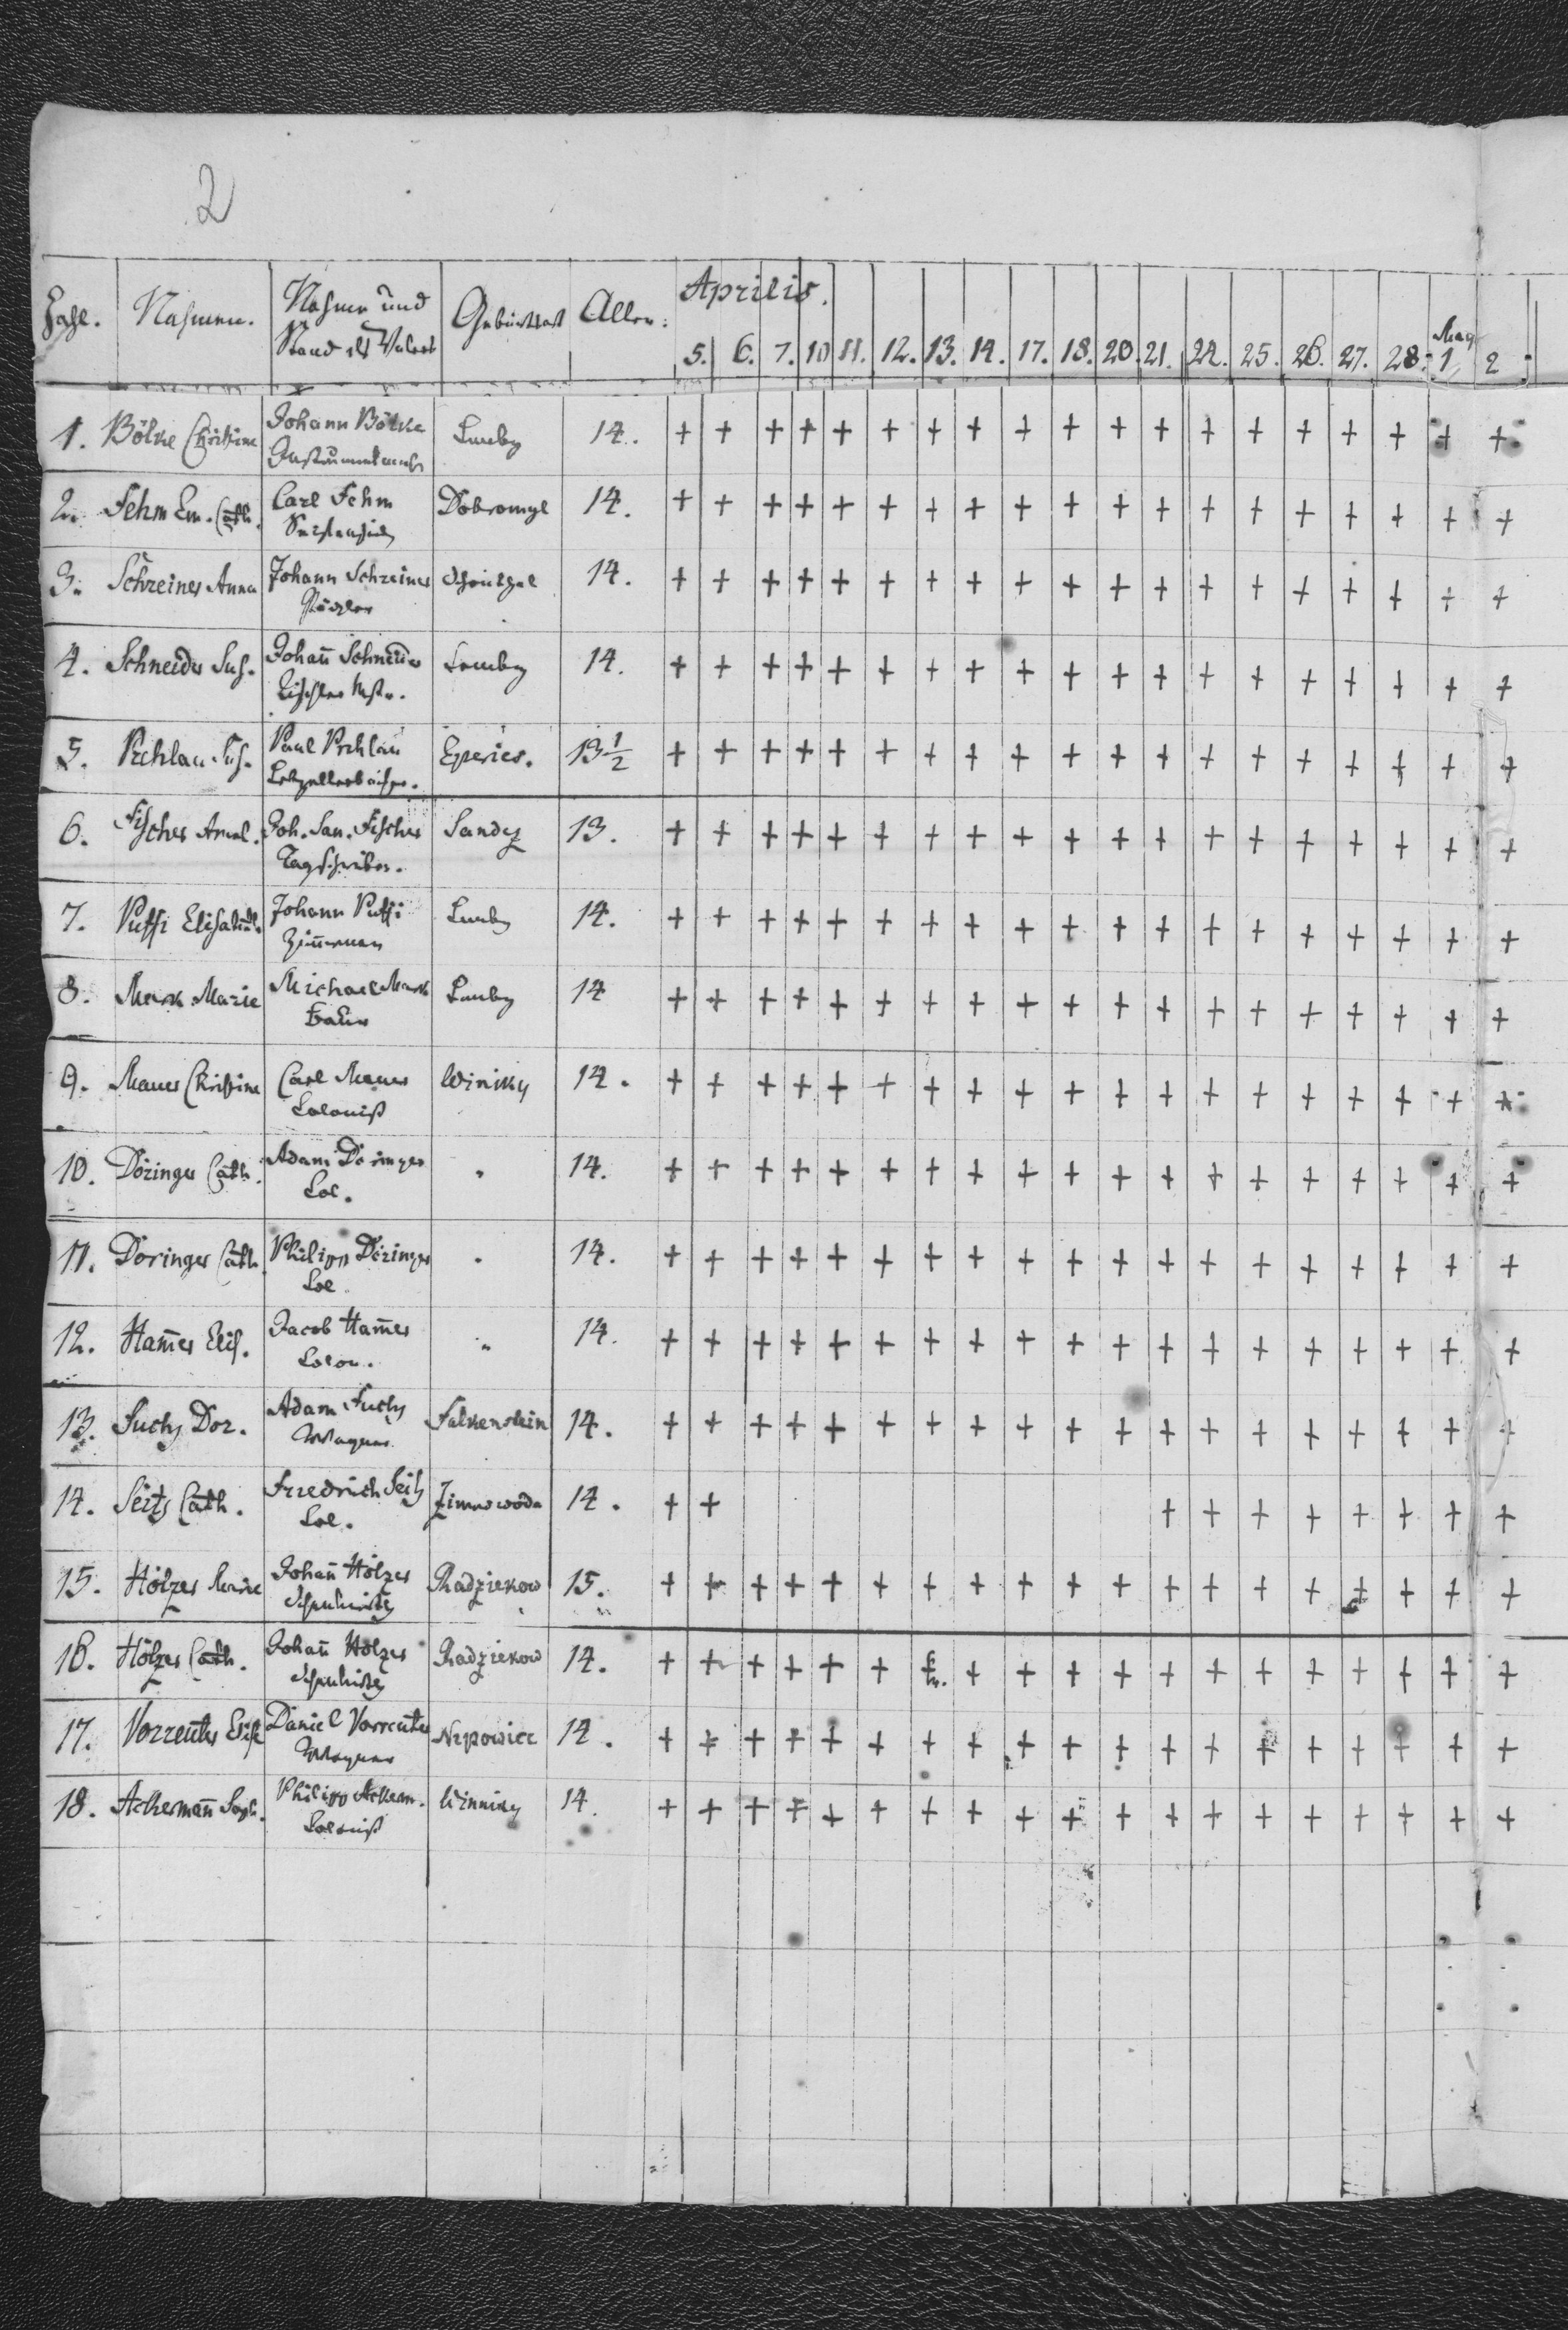 2
Zahl. Nahmen. Nahme und Stand des Vaters Geburtsort Alter. Aprilis.
5. 6. 7. 10 11. 12. 13. 14. 17. 18. 20. 21. 24. 25. 26. 27. 28. May 1 2
1. Bölke Christine Johann Bölke Lemberg 14. + + + + + + + + + + + + + + + + + + +
2. Fehm Em. Cath. Carl Fehm Dobromyl 14. + + + + + + + + + + + + + + + + + + +
3. Schreiner Anna Johann Schreiner 14. + + + + + + + + + + + + + + + + + + +
4. Schneider Sus. Johañ Schneider Tischler Mstr. Lemberg 14. + + + + + + + + + + + + + + + + + + +
5. Prchlau Sus. Paul Prchlau Eperies. 13 1/2 + + + + + + + + + + + + + + + + + + +
6. Fischer Amal. Joh. Sam. Fischer Tagschreiber. Sandez 13. + + + + + + + + + + + + + + + + + + +
7. Puffi Elisabeth Johann Puffi Zim̃erman Lemberg 14. + + + + + + + + + + + + + + + + + + +
8. Mark Marie Michael Mark Bauer Lemberg 14 + + + + + + + + + + + + + + + + + + +
9. Mauer Christine Carl Mauer Colonist Winniky 14. + + + + + + + + + + + + + + + + + + +
10. Döringer Cath. Adam Döringer Col. " 14. + + + + + + + + + + + + + + + + + + +
11. Döringer Cath. Philipp Döringer Col. " 14. + + + + + + + + + + + + + + + + + + +
12. Ham̃er Elis. Jacob Ham̃er Colon. " 14. + + + + + + + + + + + + + + + + + + +
13. Fuchs Dor. Adam Fuchs Wagner Falkenstein 14. + + + + + + + + + + + + + + + + + + +
14. Seitz Cath. Friedrich Seitz Col. Zimnowoda 14. + + + + + + + + + +
15. Hölzer Marie Johañ Hölzer Radziekow 15. + + + + + + + + + + + + + + + + + + +
16. Hölzer Cath. Johañ Hölzer Radziekow 14. + + + + + + + + + + + + + + + + + +
17. Vorreuter Elis. Daniel Vorreuter Wagner 14. + + + + + + + + + + + + + + + + + + +
18. Ackermañ Soph. Philipp Ackerm. Colonist Winniky 14. + + + + + + + + + + + + + + + + + + +